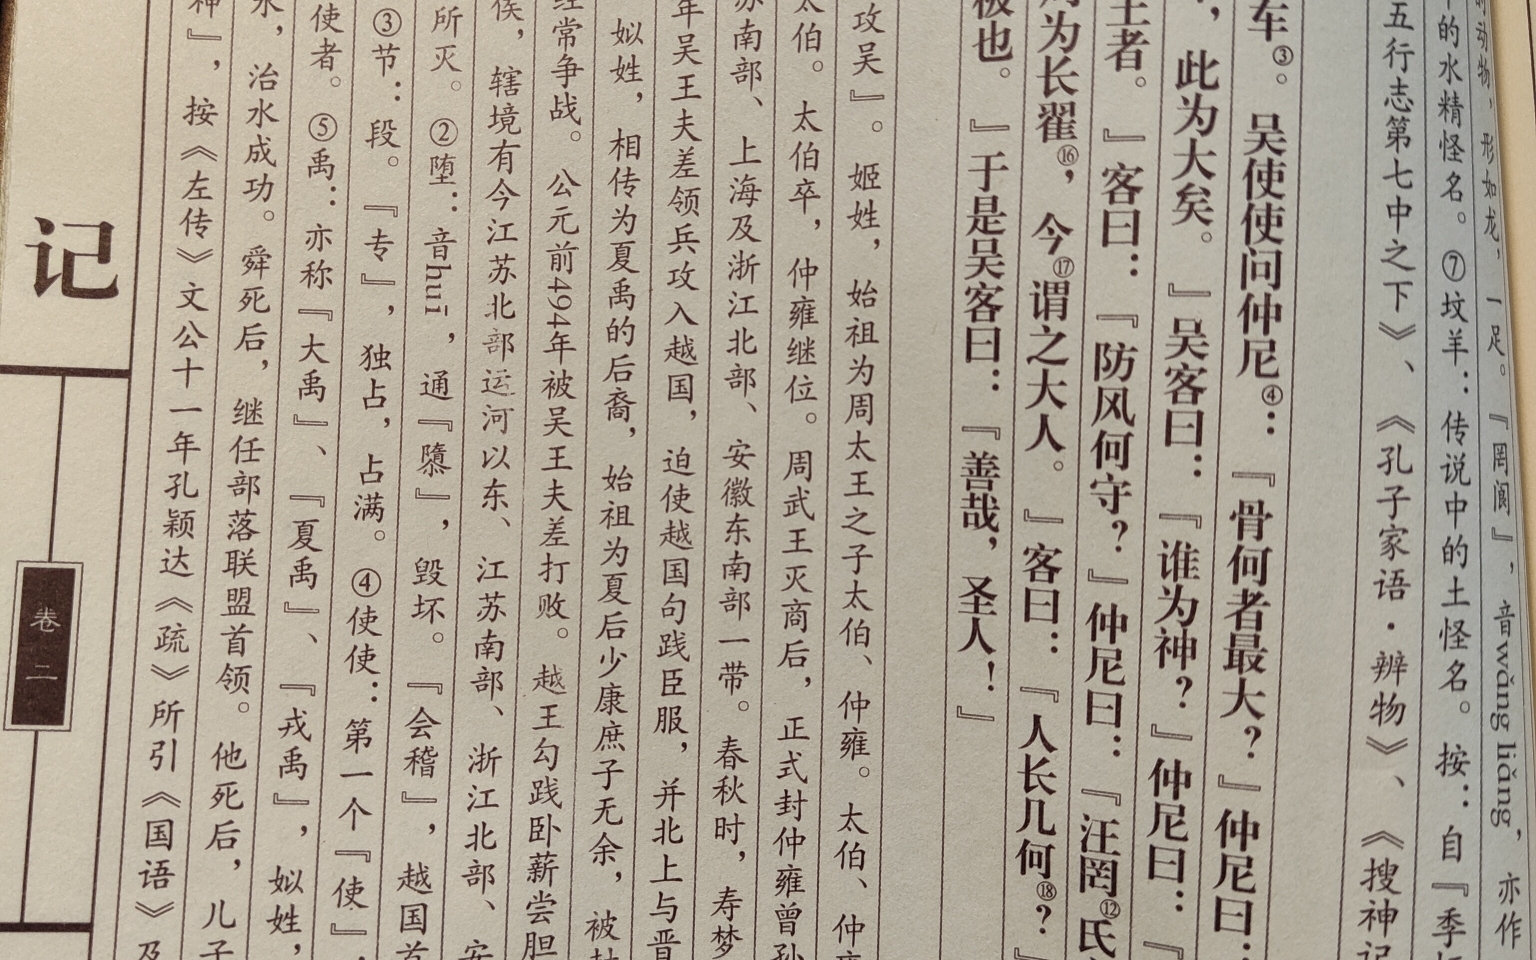 的动物，形如龙，一足。『罔阆』，音wǎng liǎng，亦作
的水精怪名。⑦坟羊：传说中的土怪名。按：自『季
五行志第七中之下》、《孔子家语·辨物》、《搜神记
车③。吴使使问仲尼④：『骨何者最大？』仲尼曰：
，此为大矣。』吴客曰：『谁为神？』仲尼曰：『
王者。』客曰：『防风何守？』仲尼曰：『汪罔⑫氏
为长翟⑯，今⑰谓之大人。』客曰：『人长几何⑱？』
极也。』于是吴客曰：『善哉，圣人！』
攻吴』。姬姓，始祖为周太王之子太伯、仲雍。太伯、仲雍
太伯。太伯卒，仲雍继位。周武王灭商后，正式封仲雍曾孙
苏南部、上海及浙江北部、安徽东南部一带。春秋时，寿梦
年吴王夫差领兵攻入越国，迫使越国句践臣服，并北上与晋
姒姓，相传为夏禹的后裔，始祖为夏后少康庶子无余，被封
经常争战。公元前494年被吴王夫差打败。越王勾践卧薪尝胆
侯，辖境有今江苏北部运河以东、江苏南部、浙江北部、安
所灭。②堕：音huī，通『隳』，毁坏。『会稽』，越国首
③节：段。『专』，独占，占满。④使使：第一个『使』，
使者。⑤禹：亦称『大禹』、『夏禹』、『戎禹』，姒姓，
水，治水成功。舜死后，继任部落联盟首领。他死后，儿子
神』，按《左传》文公十一年孔颖达《疏》所引《国语》及
记
卷二